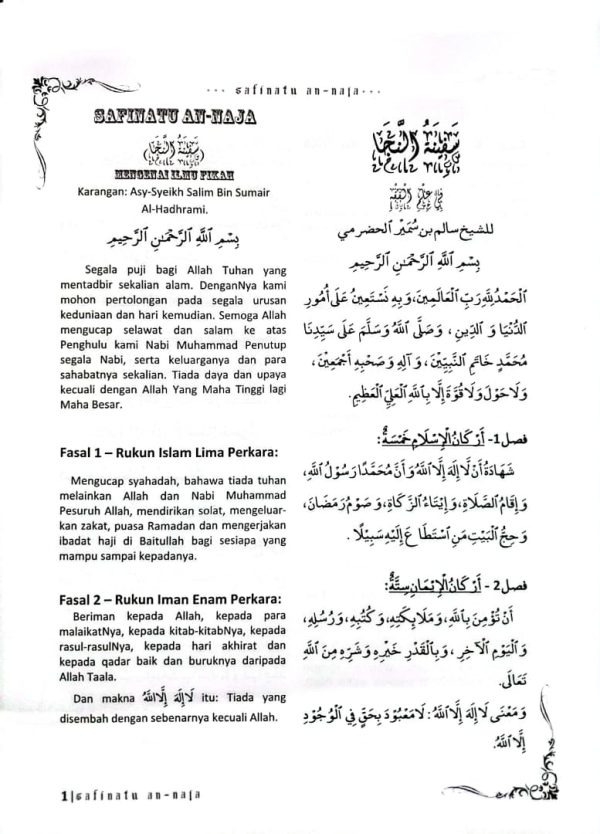 ... safinatu an-naja...
SAFINATU AN-NAJA
سَفِيْنَةُ النَّجَا
MENGENAI ILMU FIKAH
Karangan: Asy-Syeikh Salim Bin Sumair
Al-Hadhrami.
بِسْمِ اللَّهِ الرَّحْمَٰنِ الرَّحِيْمِ
Segala puji bagi Allah Tuhan yang
mentadbir sekalian alam. DenganNya kami
mohon pertolongan pada segala urusan
keduniaan dan hari kemudian. Semoga Allah
mengucap selawat dan salam ke atas
Penghulu kami Nabi Muhammad Penutup
segala Nabi, serta keluarganya dan para
sahabatnya sekalian. Tiada daya dan upaya
kecuali dengan Allah Yang Maha Tinggi lagi
Maha Besar.
Fasal 1 – Rukun Islam Lima Perkara:
Mengucap syahadah, bahawa tiada tuhan
melainkan Allah dan Nabi Muhammad
Pesuruh Allah, mendirikan solat, mengeluar-
kan zakat, puasa Ramadan dan mengerjakan
ibadat haji di Baitullah bagi sesiapa yang
mampu sampai kepadanya.
Fasal 2 – Rukun Iman Enam Perkara:
Beriman kepada Allah, kepada para
malaikatNya, kepada kitab-kitabNya, kepada
rasul-rasulNya, kepada hari akhirat dan
kepada qadar baik dan buruknya daripada
Allah Taala.
Dan makna لَا إِلَهَ إِلَّا اللَّهُ itu: Tiada yang
disembah dengan sebenarnya kecuali Allah.
سَفِيْنَةُ النَّجَا
فِي عِلْمِ الْفِقْهِ
للشيخ سالم بن سُمَيْر الحضرمي
بِسْمِ اللَّهِ الرَّحْمَٰنِ الرَّحِيْمِ
اَلْحَمْدُ لِلَّهِ رَبِّ الْعَالَمِيْنَ، وَبِهِ نَسْتَعِيْنُ عَلَى أُمُورِ
الدُّنْيَا وَ الدِّيْنِ ، وَصَلَّى اللَّهُ وَسَلَّمَ عَلَى سَيِّدِنَا
مُحَمَّدٍ خَاتَمِ النَّبِيِّيْنَ ، وَآلِهِ وَصَحْبِهِ أَجْمَعِيْنَ،
وَلَا حَوْلَ وَلَا قُوَّةَ إِلَّا بِاللَّهِ الْعَلِيِّ الْعَظِيْمِ.
فصل1- أَرْكَانُ الْإِسْلَامِ خَمْسَةٌ:
شَهَادَةُ أَنْ لَا إِلَهَ إِلَّا اللَّهُ وَأَنَّ مُحَمَّدًا رَسُوْلُ اللَّهِ،
وَإِقَامُ الصَّلَاةِ، وَإِيْتَاءُ الزَّكَاةِ، وَصَوْمُ رَمَضَانَ،
وَحِجُّ الْبَيْتِ مَنِ اسْتَطَاعَ إِلَيْهِ سَبِيْلًا .
فصل2- أَرْكَانُ الْإِيْمَانِ سِتَّةٌ:
أَنْ تُؤْمِنَ بِاللَّهِ، وَمَلَايِكَتِهِ، وَكُتُبِهِ، وَرُسُلِهِ،
وَالْيَوْمِ الْآخِرِ ، وَبِالْقَدْرِ خَيْرِهِ وَشَرِّهِ مِنَ اللَّهِ
تَعَالَى.
وَمَعْنَى لَا إِلَهَ إِلَّا اللَّهُ: لَا مَعْبُوْدَ بِحَقٍّ فِي الْوُجُوْدِ
إِلَّا اللَّهُ.
1|safinatu an-naja